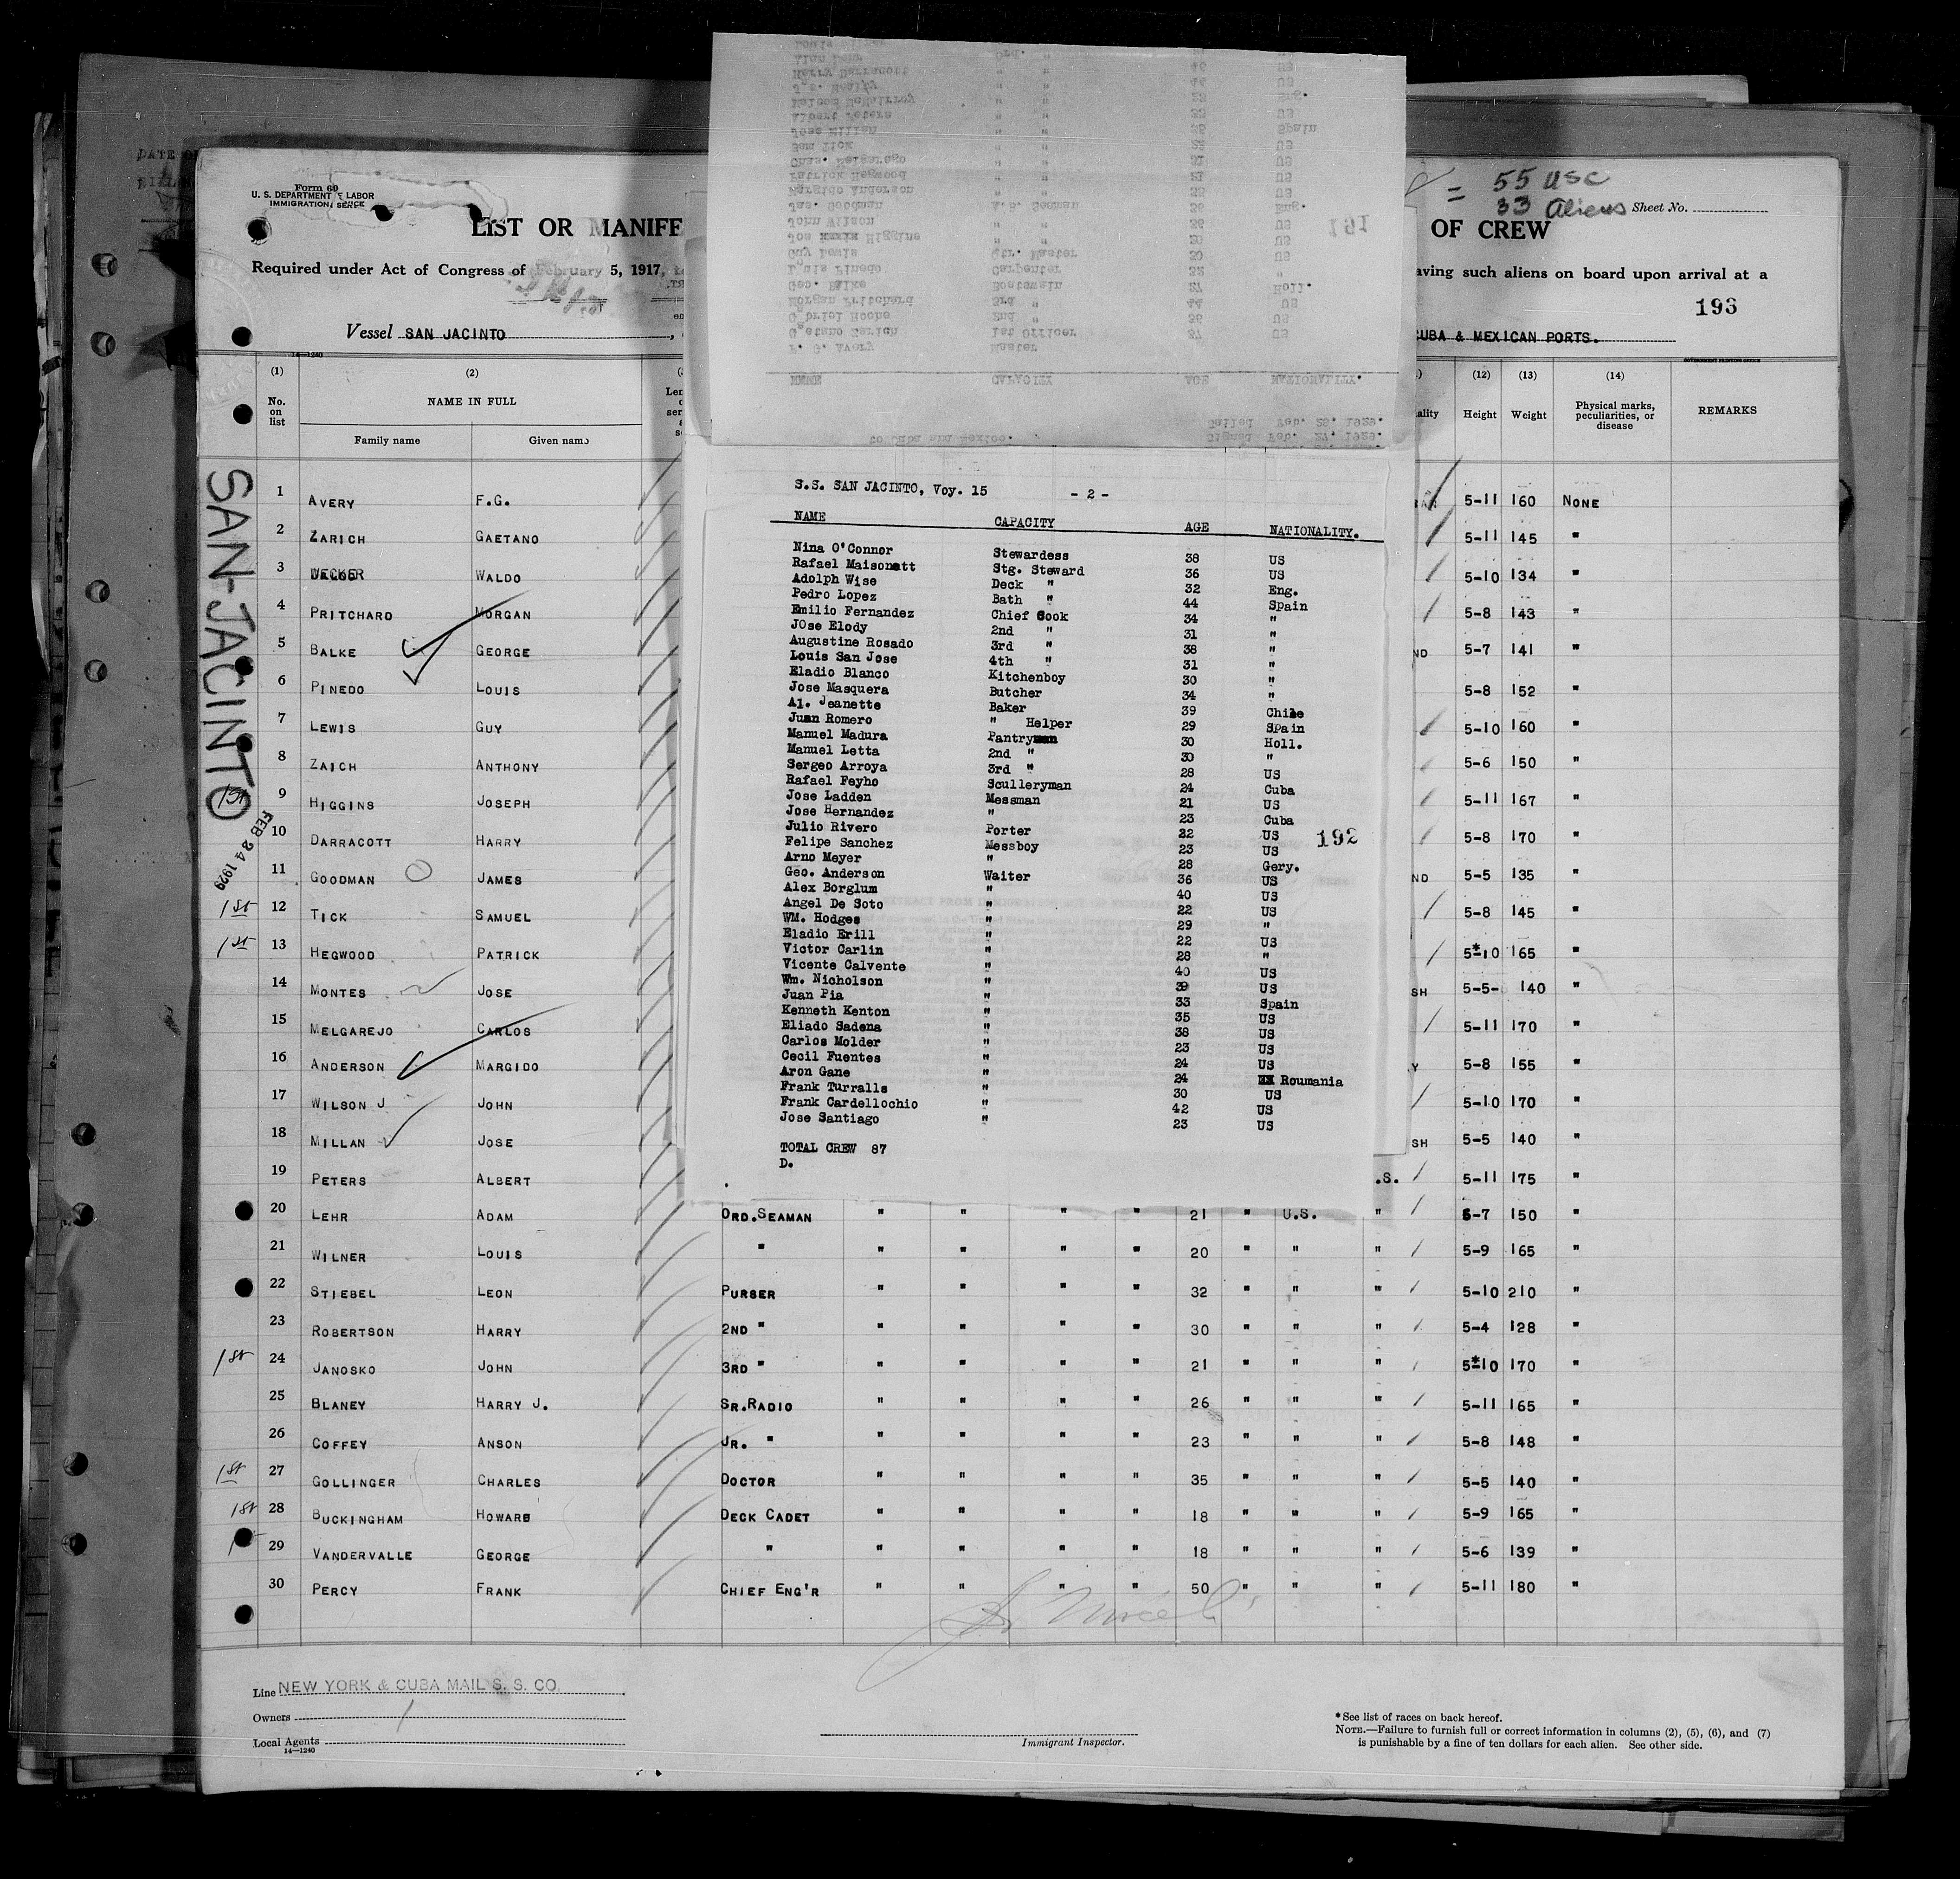 Form 69
U. S. DEPARTMENT OF LABOR
IMMIGRATION
LIST OR MANIFE
OF CREW
= 55 USC
33 Aliens Sheet No.
Required under Act of Congress of February 5, 1917,
aving such aliens on board upon arrival at a
193
Vessel SAN JACINTO
CUBA & MEXICAN PORTS.
14—1240
GOVERNMENT PRINTING OFFICE
(1) (2) (12) (13) (14)
No. on list NAME IN FULL Height Weight Physical marks, peculiarities, or disease REMARKS
Family name Given name
SAN-JACINTO
FEB 24 1929
1 AVERY F.G. 5-11 160 NONE
2 ZARICH GAETANO 5-11 145 "
3 WALDO 5-10 134 "
4 PRITCHARD MORGAN 5-8 143 "
5 BALKE GEORGE ND 5-7 141 "
6 PINEDO LOUIS 5-8 152 "
7 LEWIS GUY 5-10 160 "
8 ZAICH ANTHONY 5-6 150 "
9 HIGGINS JOSEPH 5-11 167 "
10 DARRACOTT HARRY 5-8 170 "
11 GOODMAN JAMES ND 5-5 135 "
1st 12 TICK SAMUEL 5-8 145 "
1st 13 HEGWOOD PATRICK 5-10 165 "
14 MONTES JOSE SH 5-5- 140 "
15 MELGAREJO CARLOS 5-11 170 "
16 ANDERSON MARGIDO Y 5-8 155 "
17 WILSON J JOHN 5-10 170 "
18 MILLAN JOSE SH 5-5 140 "
19 PETERS ALBERT .S. 5-11 175 "
20 LEHR ADAM ORD.SEAMAN " " " " 21 " U.S. " 5-7 150 "
21 WILNER LOUIS " " " " " 20 " " " 5-9 165 "
22 STIEBEL LEON PURSER " " " " 32 " " " 5-10 210 "
23 ROBERTSON HARRY 2ND " " " " " 30 " " " 5-4 128 "
1st 24 JANOSKO JOHN 3RD " " " " " 21 " " " 5-10 170 "
25 BLANEY HARRY J. SR.RADIO " " " " 26 " " " 5-11 165 "
26 COFFEY ANSON JR. " " " " " 23 " " " 5-8 148 "
1st 27 GOLLINGER CHARLES DOCTOR " " " " 35 " " " 5-5 140 "
1st 28 BUCKINGHAM HOWARD DECK CADET " " " " 18 " " " 5-9 165 "
29 VANDERVALLE GEORGE " " " " " 18 " " " 5-6 139 "
30 PERCY FRANK CHIEF ENG'R " " " " 50 " " " 5-11 180 "
S.S. SAN JACINTO, Voy. 15 - 2 -
NAME CAPACITY AGE NATIONALITY.
Nina O'Connor Stewardess 38 US
Rafael Maisonatt Stg. Steward 36 US
Adolph Wise Deck " 32 Eng.
Pedro Lopez Bath " 44 Spain
Emilio Fernandez Chief Cook 34 "
JOse Elody 2nd " 31 "
Augustine Rosado 3rd " 38 "
Louis San Jose 4th " 31 "
Eladio Blanco Kitchenboy 30 "
Jose Masquera Butcher 34 "
Al. Jeanette Baker 39 Chile
Juan Romero " Helper 29 Spain
Manuel Madura Pantryman 30 Holl.
Manuel Letta 2nd " 30 "
Sergeo Arroya 3rd " 28 US
Rafael Feyho Sculleryman 24 Cuba
Jose Ladden Messman 21 US
Jose Hernandez " 23 Cuba
Julio Rivero Porter 22 US
192
Felipe Sanchez Messboy 23 US
Arno Meyer " 28 Gery.
Geo. Anderson Waiter 36 US
Alex Borglum " 40 US
Angel De Soto " 22 US
WM. Hodges " 29 "
Eladio Erill " 22 US
Victor Carlin " 28 "
Vicente Calvente " 40 US
Wm. Nicholson " 39 US
Juan Pia " 33 Spain
Kenneth Kenton " 35 US
Eliado Sadena " 38 US
Carlos Molder " 23 US
Cecil Fuentes " 24 US
Aron Gane " 24 Roumania
Frank Turralls " 30 US
Frank Cardellochio " 42 US
Jose Santiago " 23 US
TOTAL CREW 87
D.
191
NAME CAPACITY AGE NATIONALITY.
F. G. Avery Master
Gaetano Zarich 1st Officer 37 US
Gabriel Hooke 2nd " 36 US
Morgan Pritchard 3rd " 44 US
Geo. Balke Boatswain 27 Holl.
Louis Pinedo Carpenter 32 "
Guy Lewis Qtr. Master 30 US
John Wilson " " 36 US
Jas. Goodman A.B. Seaman 36 Eng.
Margido Anderson " "
Patrick Hegwood " " 21 US
Sam Tick " " 22 US
Jose Millan " " Spain
Albert Peters " " US
to Cuba and Mexico.
Signed Feb. 27, 1929.
Line NEW YORK & CUBA MAIL S. S. CO.
Owners
Local Agents
14—1240
Immigrant Inspector.
*See list of races on back hereof.
NOTE.—Failure to furnish full or correct information in columns (2), (5), (6), and (7)
is punishable by a fine of ten dollars for each alien. See other side.